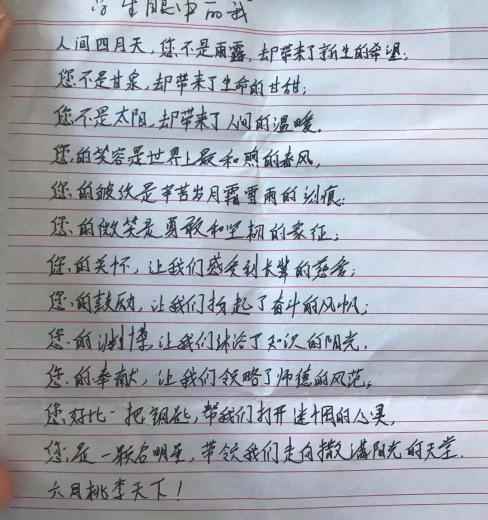 学生眼中的我
人间四月天,您不是雨露,却带来了新生的希望;
您不是甘泉,却带来了生命的甘甜;
您不是太阳,却带来了人间的温暖.
您的笑容是世界上最和煦的春风,
您的皱纹是辛苦岁月霜雪雨的刻痕;
您的微笑是勇敢和坚韧的象征;
您的关怀,让我们感受到长辈的慈爱;
您的鼓励,让我们扬起了奋斗的风帆;
您的渊博,让我们沐浴了知识的阳光.
您的奉献,让我们领略了师德的风范;
您好比一把钥匙,帮我们打开迷惘的心灵,
您是一颗启明星,带领我们走向撒满阳光的天堂.
六月桃李天下!